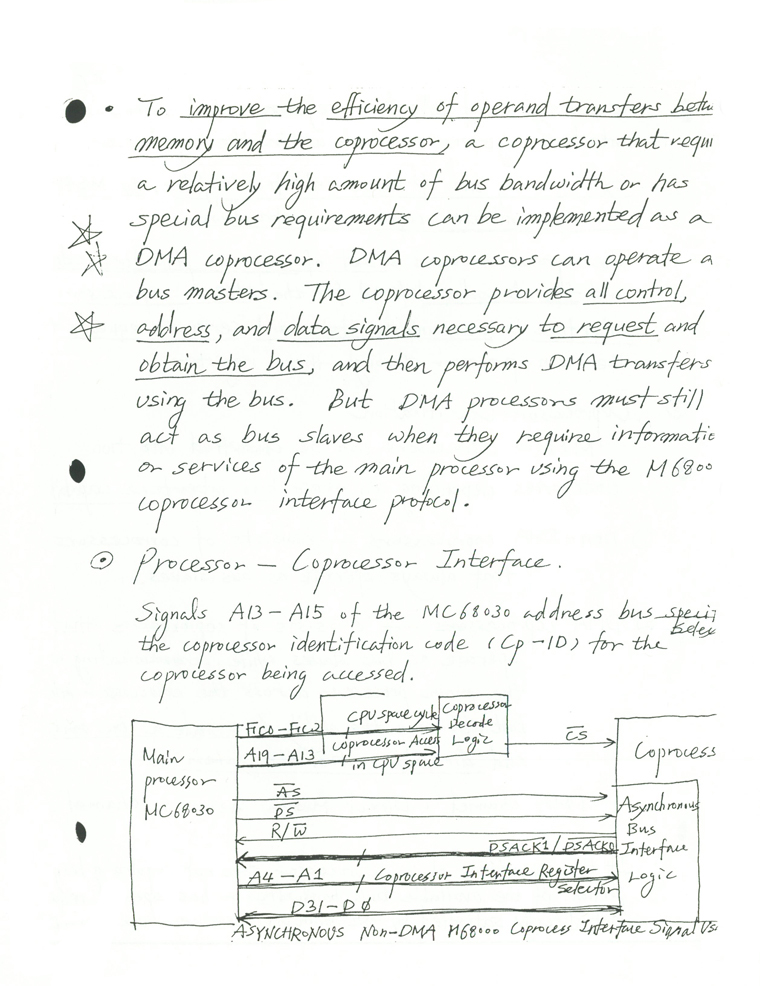 • To improve the efficiency of operand transfers betw
memory and the coprocessor, a coprocessor that requi
a relatively high amount of bus bandwidth or has
special bus requirements can be implemented as a
DMA coprocessor. DMA coprocessors can operate a
bus masters. The coprocessor provides all control,
address, and data signals necessary to request and
obtain the bus, and then performs DMA transfers
using the bus. But DMA processors must still
act as bus slaves when they require informatio
or services of the main processor using the M6800
coprocessor interface protocol.
Processor – Coprocessor Interface.
Signals A13-A15 of the MC68030 address bus speci
the coprocessor identification code (Cp-ID) for the
coprocessor being accessed.
FC0-FC2 CPU space cycle Coprocessor Decode Logic
A19-A13 Coprocessor Access in CPU space
CS
Main processor MC68030
Coprocess
AS
DS
R/W
Asynchronous Bus Interface Logic
DSACK1/DSACK0
A4-A1 Coprocessor Interface Register Selector
D31-D0
ASYNCHRONOUS NON-DMA M68000 Coprocess Interface Signal Us